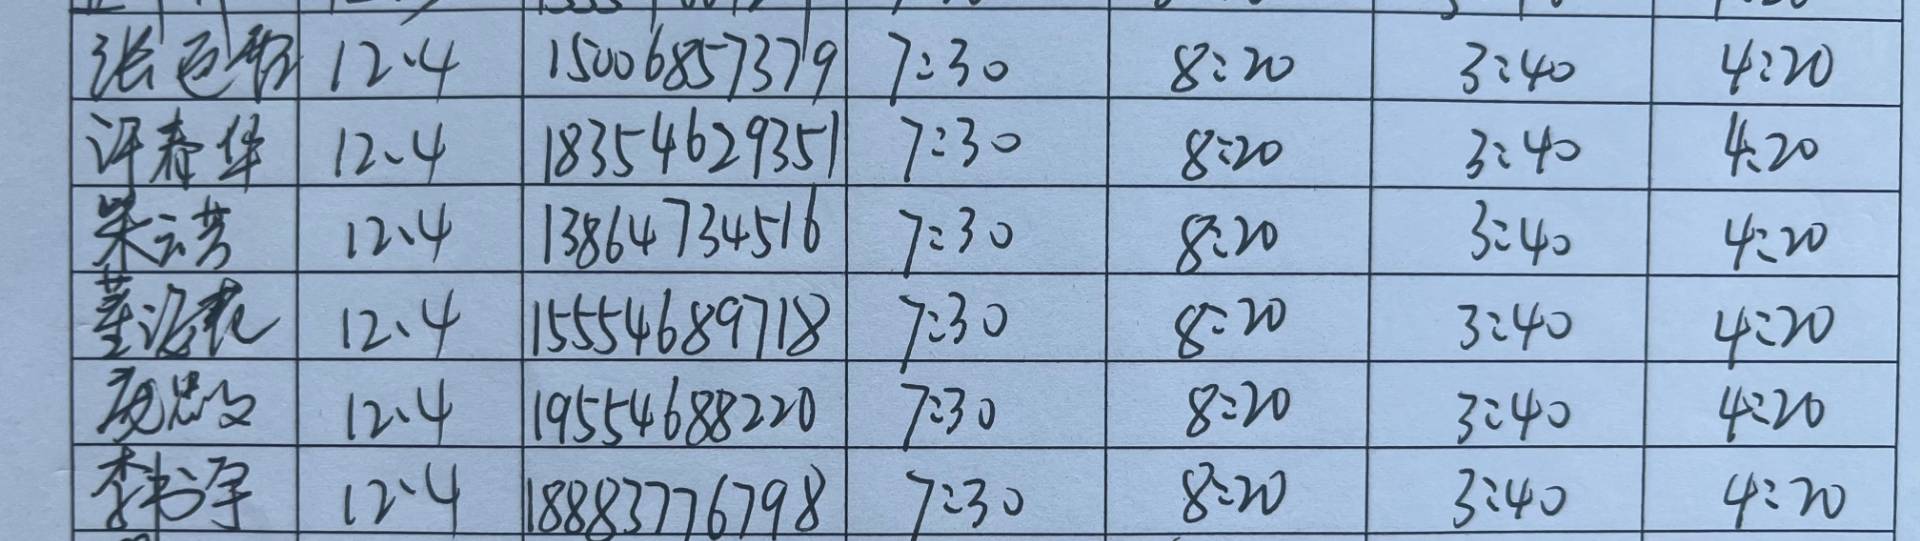 张 12.4 15006857379 7:30 8:20 3:40 4:20
许春华 12.4 18354629351 7:30 8:20 3:40 4:20
朱云芳 12.4 13864734516 7:30 8:20 3:40 4:20
董 12.4 15554689718 7:30 8:20 3:40 4:20
12.4 19554688220 7:30 8:20 3:40 4:20
李书宇 12.4 18883776798 7:30 8:20 3:40 4:20